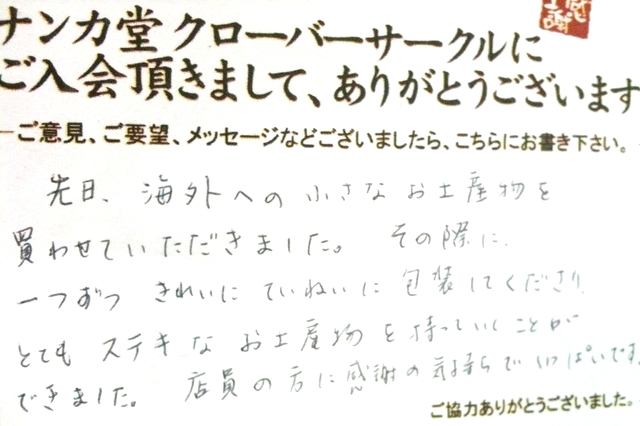 感謝
ナンカ堂 クローバーサークルに
ご入会頂きまして、ありがとうございます
ご意見、ご要望、メッセージなどございましたら、こちらにお書き下さい。
先日、海外への小さなお土産物を
買わせていただきました。その際に、
一つずつ きれいに ていねいに 包装してくださり、
とても ステキな お土産物を持っていくことが
できました。店員の方に感謝の気持ちでいっぱいです
ご協力ありがとうございました。